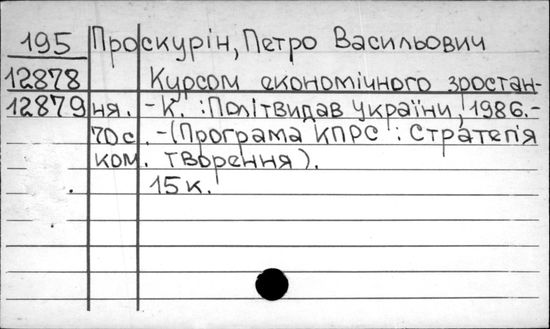 195 Проскурін, Петро Васильович
12878 Курсом економічного зростан-
12879 ня. - К. : Політвидав України, 1986.-
70 с. - (Програма КПРС : Стратегія
ком. творення).
15 к.